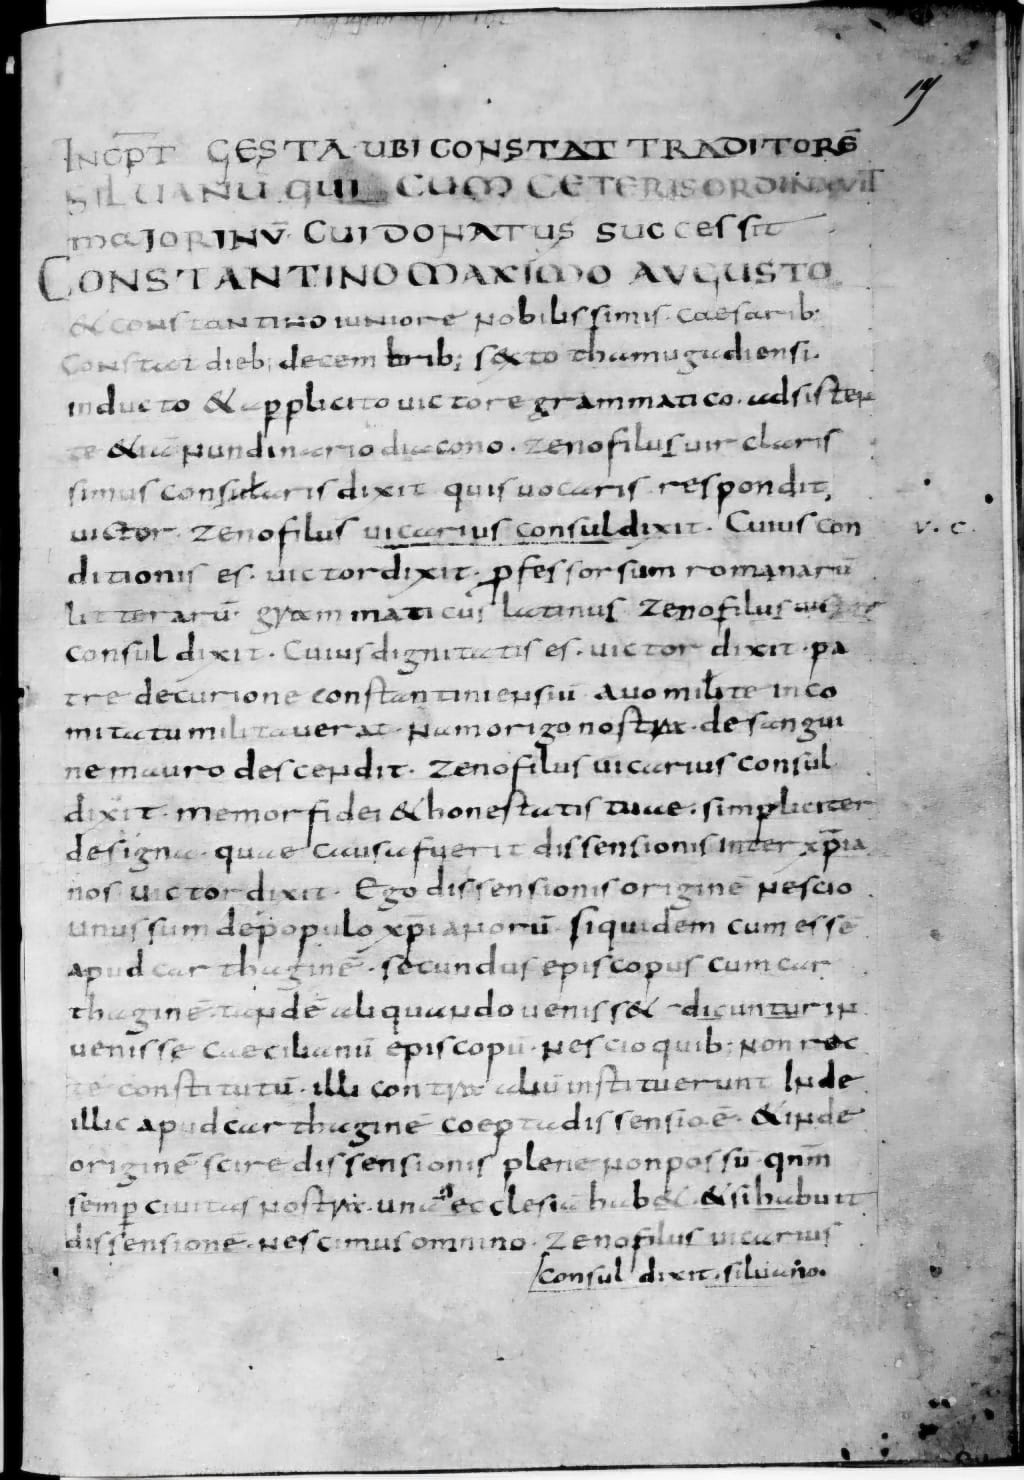 19
INCP̄T GESTA UBI CONSTAT TRADITORĒ
SILUANŪ QUI CUM CETERIS ORDINAUIT
MAJORINV̄· CUI DONATUS SUCCESSIT
CONSTANTINO MAXIMO AVGUSTO
& constantino iuniore nobilissimis· caesarib;
Constat dieb; decembrib; s&to thamugadiensi.
inducto & applicito uictore grammatico· adsisten
te &iā nundinario diacono· zenofilus uir claris
simus consularis dixit quis uocaris· respondit,
uictor· zenofilus uicarius consul dixit· Cuius con
v. c.
ditionis es· uictor dixit· ꝓfessor sum romanarū
litterarū· grammaticus latinus zenofilus
consul dixit· Cuius dignitatis es· uictor dixit· pa
tre decurione constantiniensiū· Auo milite in co
mitatu militauerat· Nam origo nostra· de sangui
ne mauro descendit· zenofilus uicarius consul
dixit· memor fidei & honestatis tuae· simpliciter
designa· quae causa fuerit dissensionis inter xp̄ia
nos uictor dixit· Ego dissensionis originē nescio
unus sum de populo xp̄ianorū· siquidem cum essē
apud carthaginē· secundus episcopus cum car
thaginē· tandē aliquando ueniss& dicuntur in
uenisse caecilianū episcopū· nescio quib; non rec
te constitutū· illi contra aliū instituerunt Inde
illic apud carthaginē coepta dissensio ē· & inde
originē scire dissensionis plene non possū· qnm̄
semꝑ ciuitas nostra· unā ecclesiā hab&· & si habuit
dissensione· nescimus omnino· Zenofilus uicarius
consul dixit· siluano.